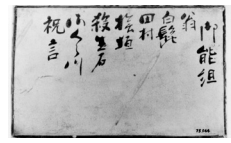 御能組
翁
白髭
田村
檜垣
殺生石
祝言